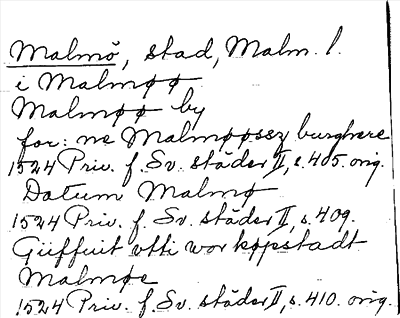 Malmö, stad, Malm. l.
i Malmøø
Malmøø by
for: ne Malmøøssz burghere
1524 Priv. f. Sv. städer II, s. 405. orig.
Datum Malmø
1524 Priv. f. Sv. städer II, s. 409.
Giiffuit vtti wor køpstadt
Malmøe
1524 Priv. f. Sv. städer II, s. 410. orig.